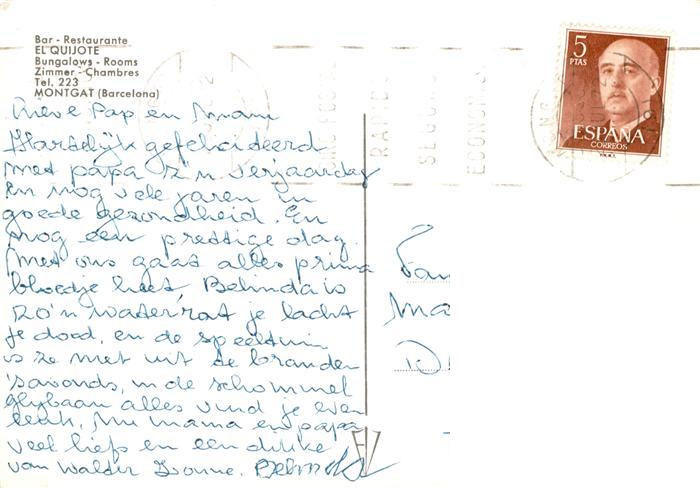 Bar - Restaurante
EL QUIJOTE
Bungalows - Rooms
Zimmer - Chambres
Tel. 223
MONTGAT (Barcelona)
5
PTAS
ESPAÑA
CORREOS
Lieve Pap en Mam
Hartelijk gefeliciteerd
met papa z'n verjaardag
en nog vele jaren in
goede gezondheid. En
nog een prettige dag.
Met ons gaat alles prima
bloedje heet, Belinda is
zo'n waterrat je lacht
je dood, en de speeltuin
is ze niet uit te branden
's avonds, in de schommel
glijbaan alles vind je even
leuk. Nu mama en papa
veel liefs en een dikke
van Walder Ivonne. Belinda
Fam
Ma
D